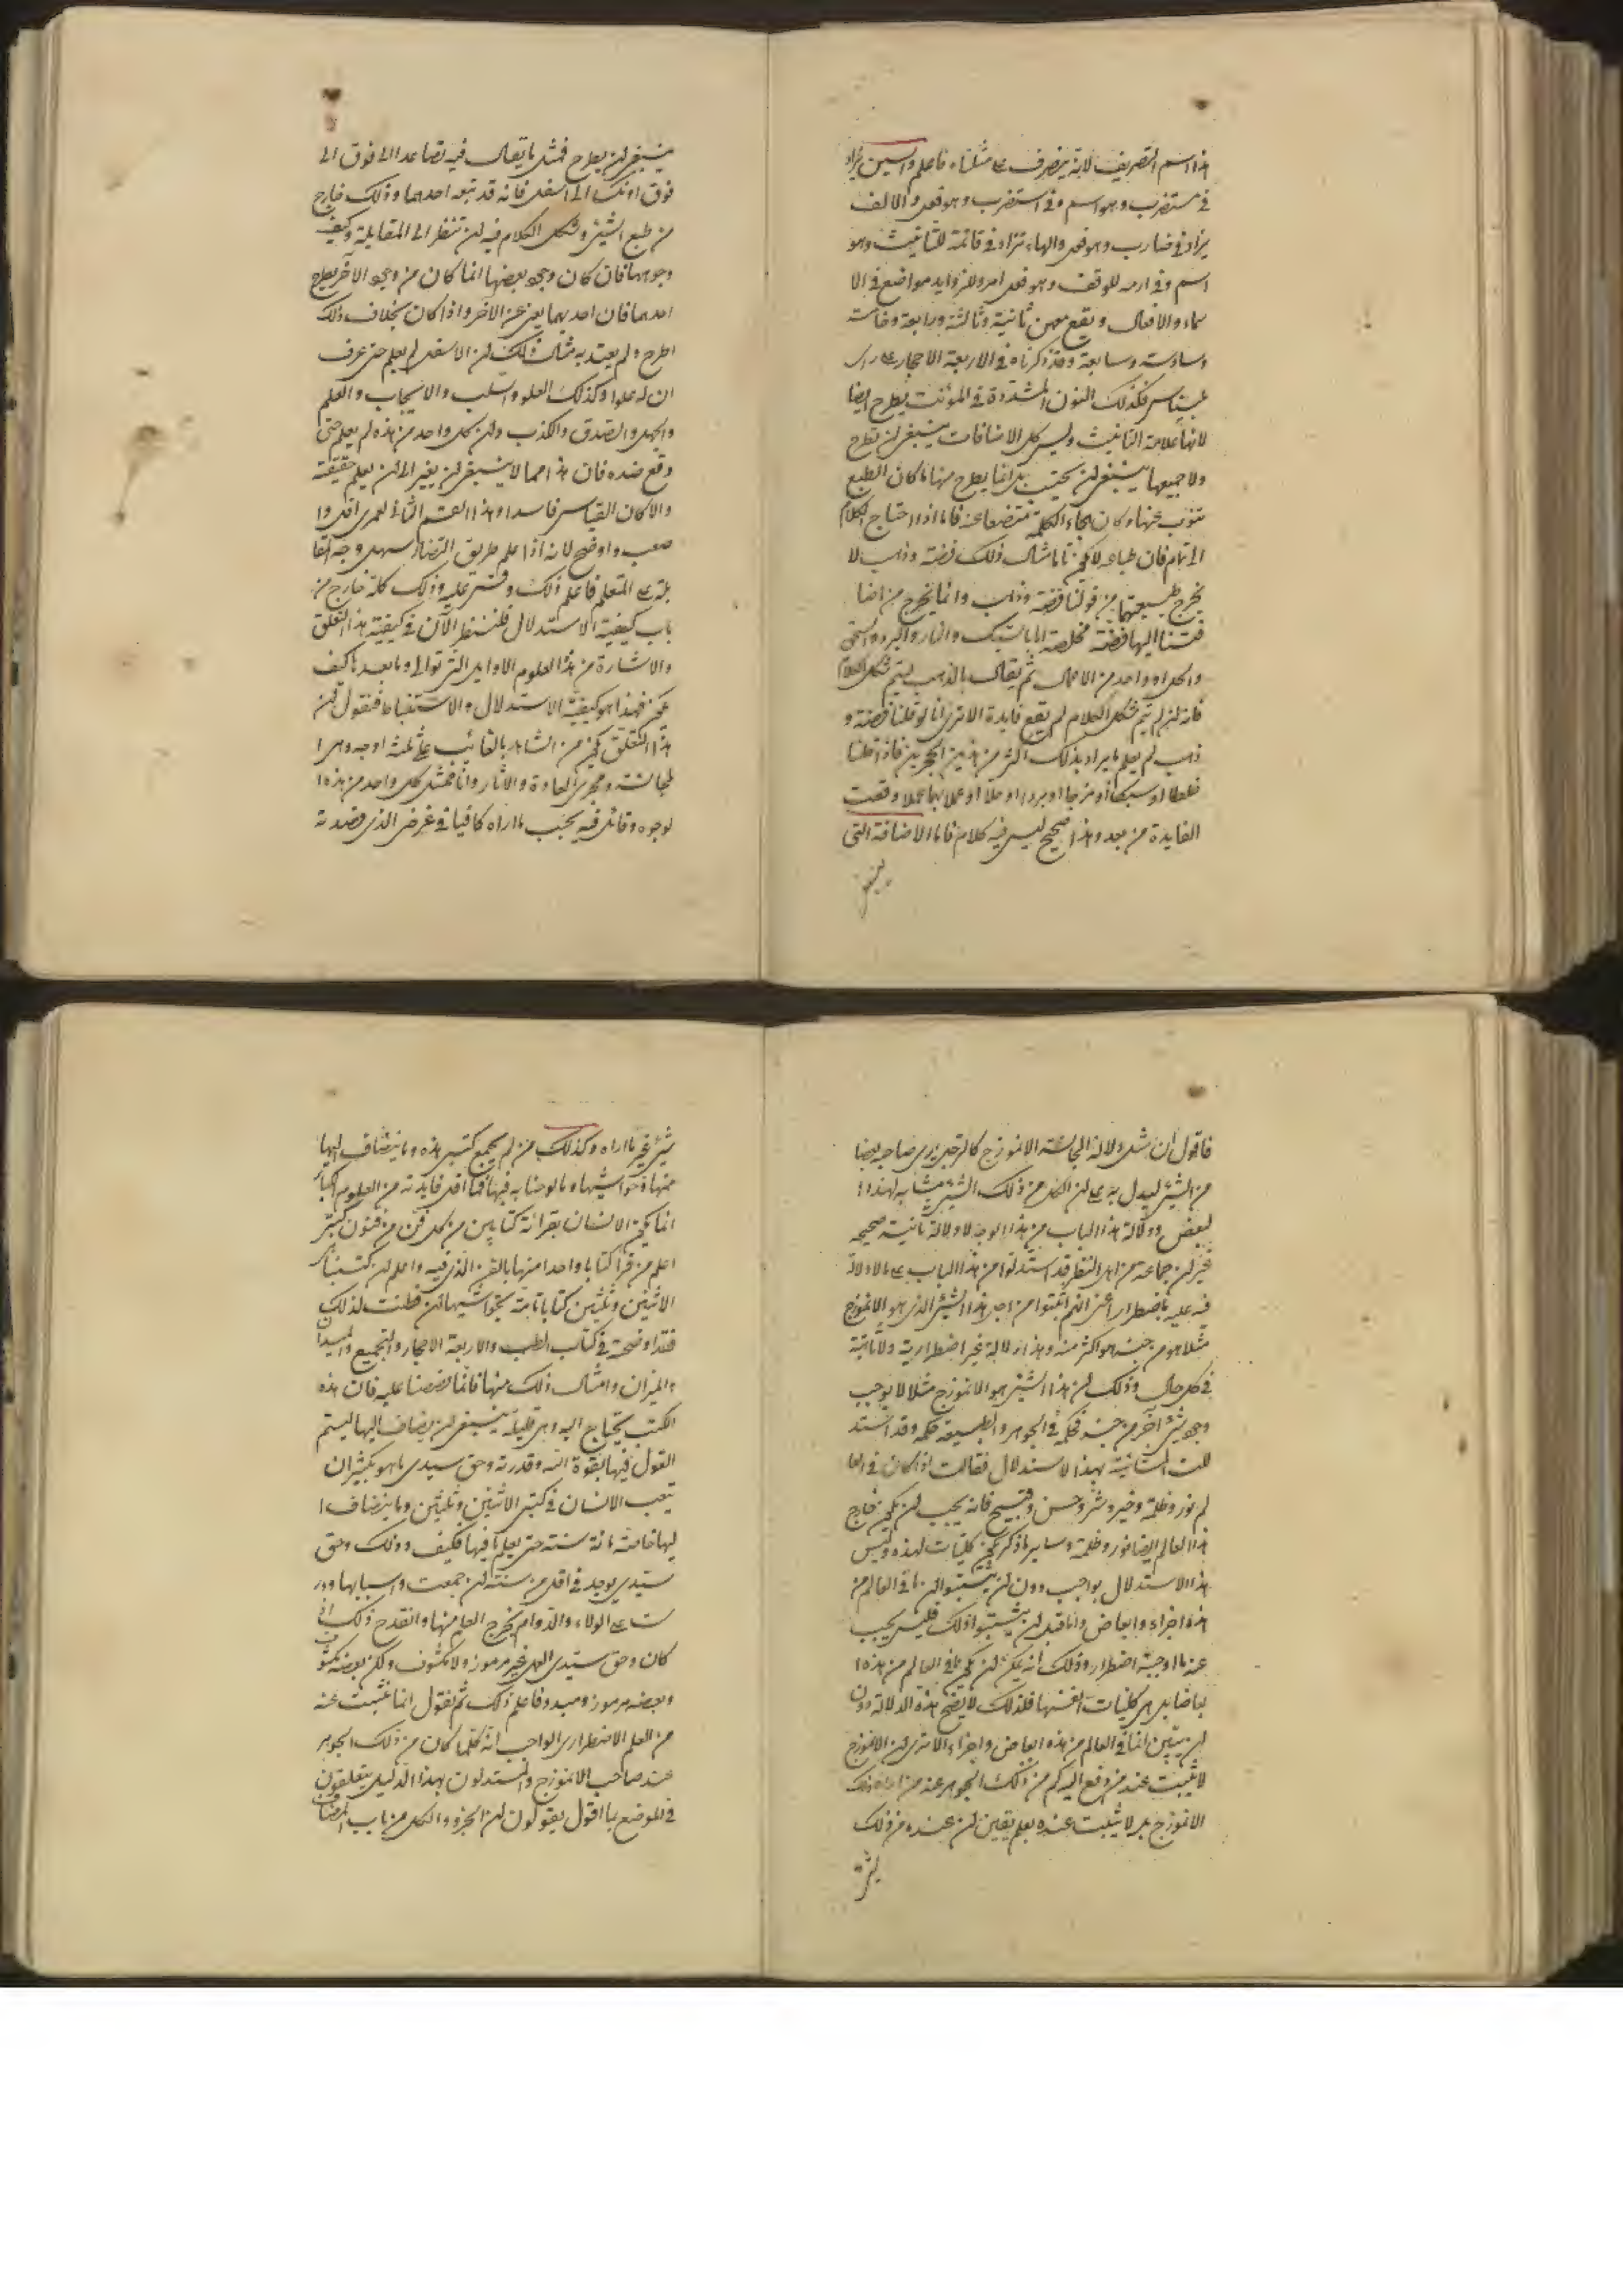 هذا اسم التصريف لانه ينصرف على مثلناه فاعلم والسين يزاد
فى مستضرب وهو اسم وفى استضرب وهو فعل والالف
يزاد فى ضارب وهو فعل والهاء تزاد فى قائمة للتانيث وهو
اسم وفى ارمه للوقف وهو فعل امر وللزوايد مواضع فى الا
سماء والافعال وتقع فيهن ثانية وثالثة ورابعة وخامسة
وسادسة وسابعة وقد ذكرناه فى الاربعة الاحجار على راى
بليناس فكذلك النون المشددة فى المونث يطرح ايضا
لانها علامة التانيث وليس كل الاضافات ينبغى لن تطرح
ولا جميعها ينبغى لن يجتنب بل انما يطرح منها ما كان الطبع
ينوب عنها وكان هجاء الكلمة منتضعا عنه فاما اذا احتاج الكلام
الى تمام فان طباعه لا يكون تاما مثال ذلك فضة وذهب لا
يخرج طبيعتهما من قولنا فضة وذهب وانما يخرج من اضا
فتنا اليها فضة مخلصة اما بالسبك والنار والبرد والسحق
والحل او واحد من الاعمال ثم يقال بالذهب ليتم شكل الكلام
فانه لن لم يتم شكل الكلام لم يقع فايدة الا ترى انا لو قلنا فضة و
ذهب لم يعلم ما يراد بذلك اكثر من هذين الحجرين فاذا قلنا
خلطا او سبكا او مزجا او بردا او حلا او عملا بهما عملا وقعت
الفايدة من بعد وهذا صحيح ليس فيه كلام فاما الاضافة التى
ينبغى
ينبغى لن يطرح فمثل ما يقال فيه تصاعد الى فوق الى
فوق او نكس الى اسفل فانه قد تبعه احدهما وذلك خارج
من طبع الشئ وشكل الكلام فيه لن تنظر الى المقابلة وكيف
وجوبها فان كان وجود بعضها انما كان من وجود الآخر يطرح
احدهما فان احدهما يغنى عن الآخر واذا كان بخلاف ذلك
اطرح ولم يعتد به مثال ذلك لن الاسفل لم يعلم حتى عرف
ان له علوا وكذلك العلو والسلب والايجاب والعلم
والجهل والصدق والكذب ولن كل واحد من هذه لم يعلم حتى
وقع ضده فان هذا مما لا ينبغى لن يغير الى لن يعلم حقيقته
والا كان القياس فاسدا وهذا القسم الثانى لعمرى اقل وا
صعب واوضح لانه اذا علم طريق التضاد سهل وجه المقا
بلة على المتعلم فاعلم ذلك وقس عليه وذلك كله خارج من
باب كيفية الاستدلال فلننظر الآن فى كيفية هذا التعلق
والاشارة من هذا العلوم الاوايل التى توالى وما بعد ما كيف
يكون فهذا هو كيفية الاستدلال والاستنباط فنقول لن
هذا التعلق يكون من الشاهد بالغائب على ثلثة اوجه وهى ا
لمجانسة ومجرى العادة والآثار وانا ممثل كل واحد من هذه ا
لوجوه وقائل فيه بحسب ما اراه كافيا فى غرض الذى قصدته
فاقول ان مثل دلالة المجانسة الانموزج كالرجل يرى صاحبه بعضا
من الشئ ليدل به على لن الكل من ذلك الشئ مشابه لهذا ا
لبعض ودلالة هذا الباب من هذا الوجه لا دلالة ثانية صحيحة
غير لن جماعة من اهل النظر قد استدلوا من هذا الباب على ما لا دلالة
فيه عليه باضطرار اعنى انهم اثبتوا من اجل هذا الشئ الذى هو الانموزج
مثلا هو من جنسه هو اكثر منه وهذا دلالة غير اضطرارية ولا ثابتة
فى كل حال وذلك لن هذا الشئ هو الانموزج مثلا لا يوجب
وجود شئ آخر من جنسه فحكمه فى الجوهر والطبيعة حكمه وقد استد
للت المنانية بهذا الاستدلال فقالت اذا كان فى العا
لم نور وظلمة وخير وشر وحسن وقبيح فانه يجب لن يكون خارج
هذا العالم ايضا نور وظلمة وساير ما ذكر يكون كليات لهذه وليس
هذا الاستدلال بواجب دون لن يثبتوا لن ما فى العالم من
هذه اجزاء وابعاض واما قبل لن يثبتوا ذلك فليس يجب
عنه ما اوجبته اضطرار وذلك انه يمكن لن يكون ما فى العالم من هذه ا
بعاضا بل هى كليات انفسها فلذلك لا يصح هذه الدلالة دون
لن يتبين انما فى العالم من هذه ابعاض واجزاء الا ترى لن الانموزج
لا يثبت عند من وقع اليه كم من ذلك الجوهر عند من
الانموزج بل لا يثبت عنده بعلم يقين لن عنده من ذلك
شئ غير ما اراه وكذلك من لم يجمع كتبى هذه وما ينضاف اليها
منها وحواشيها وما لوحنا به فيها فما اقل فايدته من العلوم
انما يكون الانسان بقرائة كتابين من كل فن من فنون كتبى
اعلم من قرا كتابا واحدا منها بالفن الذى فيه واعلم لن كتبنا
الاثنين وثلثين كتابا تامة بحواشيها لن فطنت لذلك
فقد اوضحته فى كتاب الطب والاربعة الاحجار والتجميع والميدان
والميزان وامثال ذلك منها فانما نصصنا عليه فان هذه
الكتب يحتاج اليه وهى قليلة ينبغى لن يضاف اليها ليستتم
القول فيها بقوة الله وقدرته وحق سيدى ما هو بكثير ان
يتعب الانسان فى كتبى الاثنين وثلثين وما ينضاف ا
ليها خاصة مائة سنة حتى يعلم ما فيها فكيف وذلك وحق
سيدى يوجد فى اقل من سنة لن جمعت واسبابها ودر
ست على الولاء والدوام يخرج العلم منها وانقدح ذلك
كان وحق سيدى العلم غير مرموز ولا مكشوف ولكن بعضه
وبعضه مرموز ومبدد فاعلم ذلك ثم نقول انما يثبت عنه
من العلم الاضطرارى الواجب انه كلما كان من ذلك الجوهر
عند صاحب الانموزج والمستدلون بهذا الدليل يتعلقون
فى الموضع بما اقول يقولون لن الجزو والكل من باب المضاف